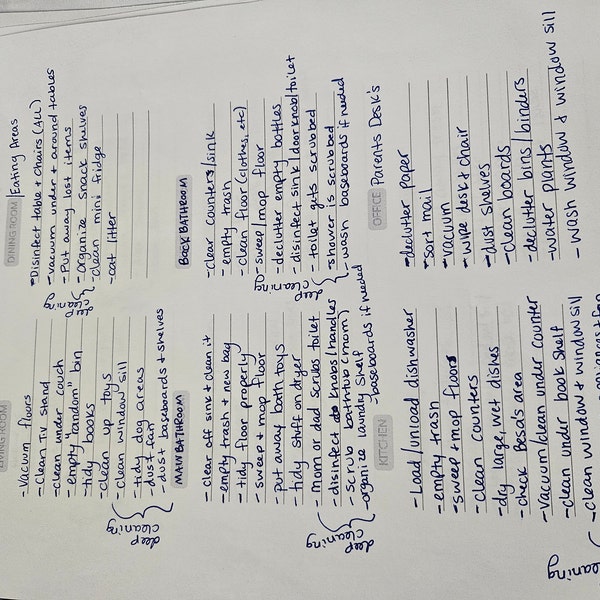 LIVING ROOM
-Vacuum floors
-clean TV stand
-clean under couch
-empty "random" bin
-tidy books
-clean up toys
-clean window sill
-tidy dog areas
-dust fan
-dust baseboards + shelves
deep cleaning
DINING ROOM/Eating Areas
*Disinfect table + chairs (ALL)
-vacuum under + around tables
-Put away lost items
-organize snack shelves
-clean mini fridge
-cat litter
deep cleaning
MAIN BATHROOM
-clear off sink + clean it
-empty trash + new bag
-tidy floor properly
-sweep + mop floor
-put away bath toys
-tidy stuff on dryer
-mom or dad scrubs toilet
-disinfect knobs/handles
-scrub bathtub (mom)
-organize laundry shelf
-baseboards if needed
deep cleaning
BACK BATHROOM
-clear counters/sink
-empty trash
-clean floor (clothes, etc)
-sweep/mop floor
-declutter empty bottles
-disinfect sink/doorknob/toilet
-toilet gets scrubbed
-shower is scrubbed
-wash baseboards if needed
deep cleaning
KITCHEN
-Load/unload dishwasher
-empty trash
*sweep + mop floors
-clean counters
-dry large, wet dishes
-check Besa's area
-Vacuum/clean under counter
-clean under book shelf
-clean window + window sill
cleaning
OFFICE Parents Desk's
*declutter paper
*sort mail
*vacuum
-wipe desk + chair
-dust shelves
-clean boards
-declutter bins/binders
-water plants
-wash window + window sill